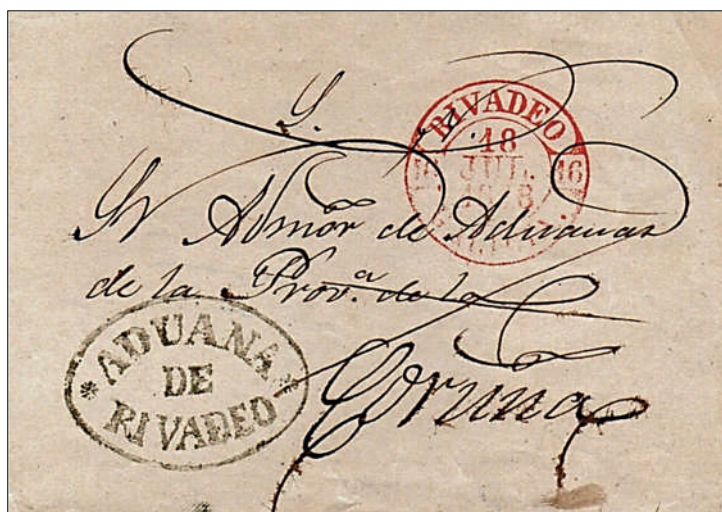 S.
RIVADEO
18
JUL.
16
Sr Admor de Aduanas
de la Prova. de la
Coruña
ADUANA
DE
RIVADEO